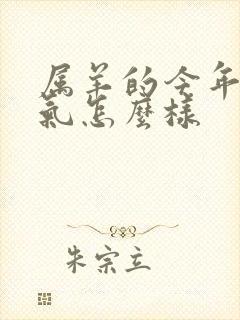 属羊的今年
氣怎麼樣
朱宗立